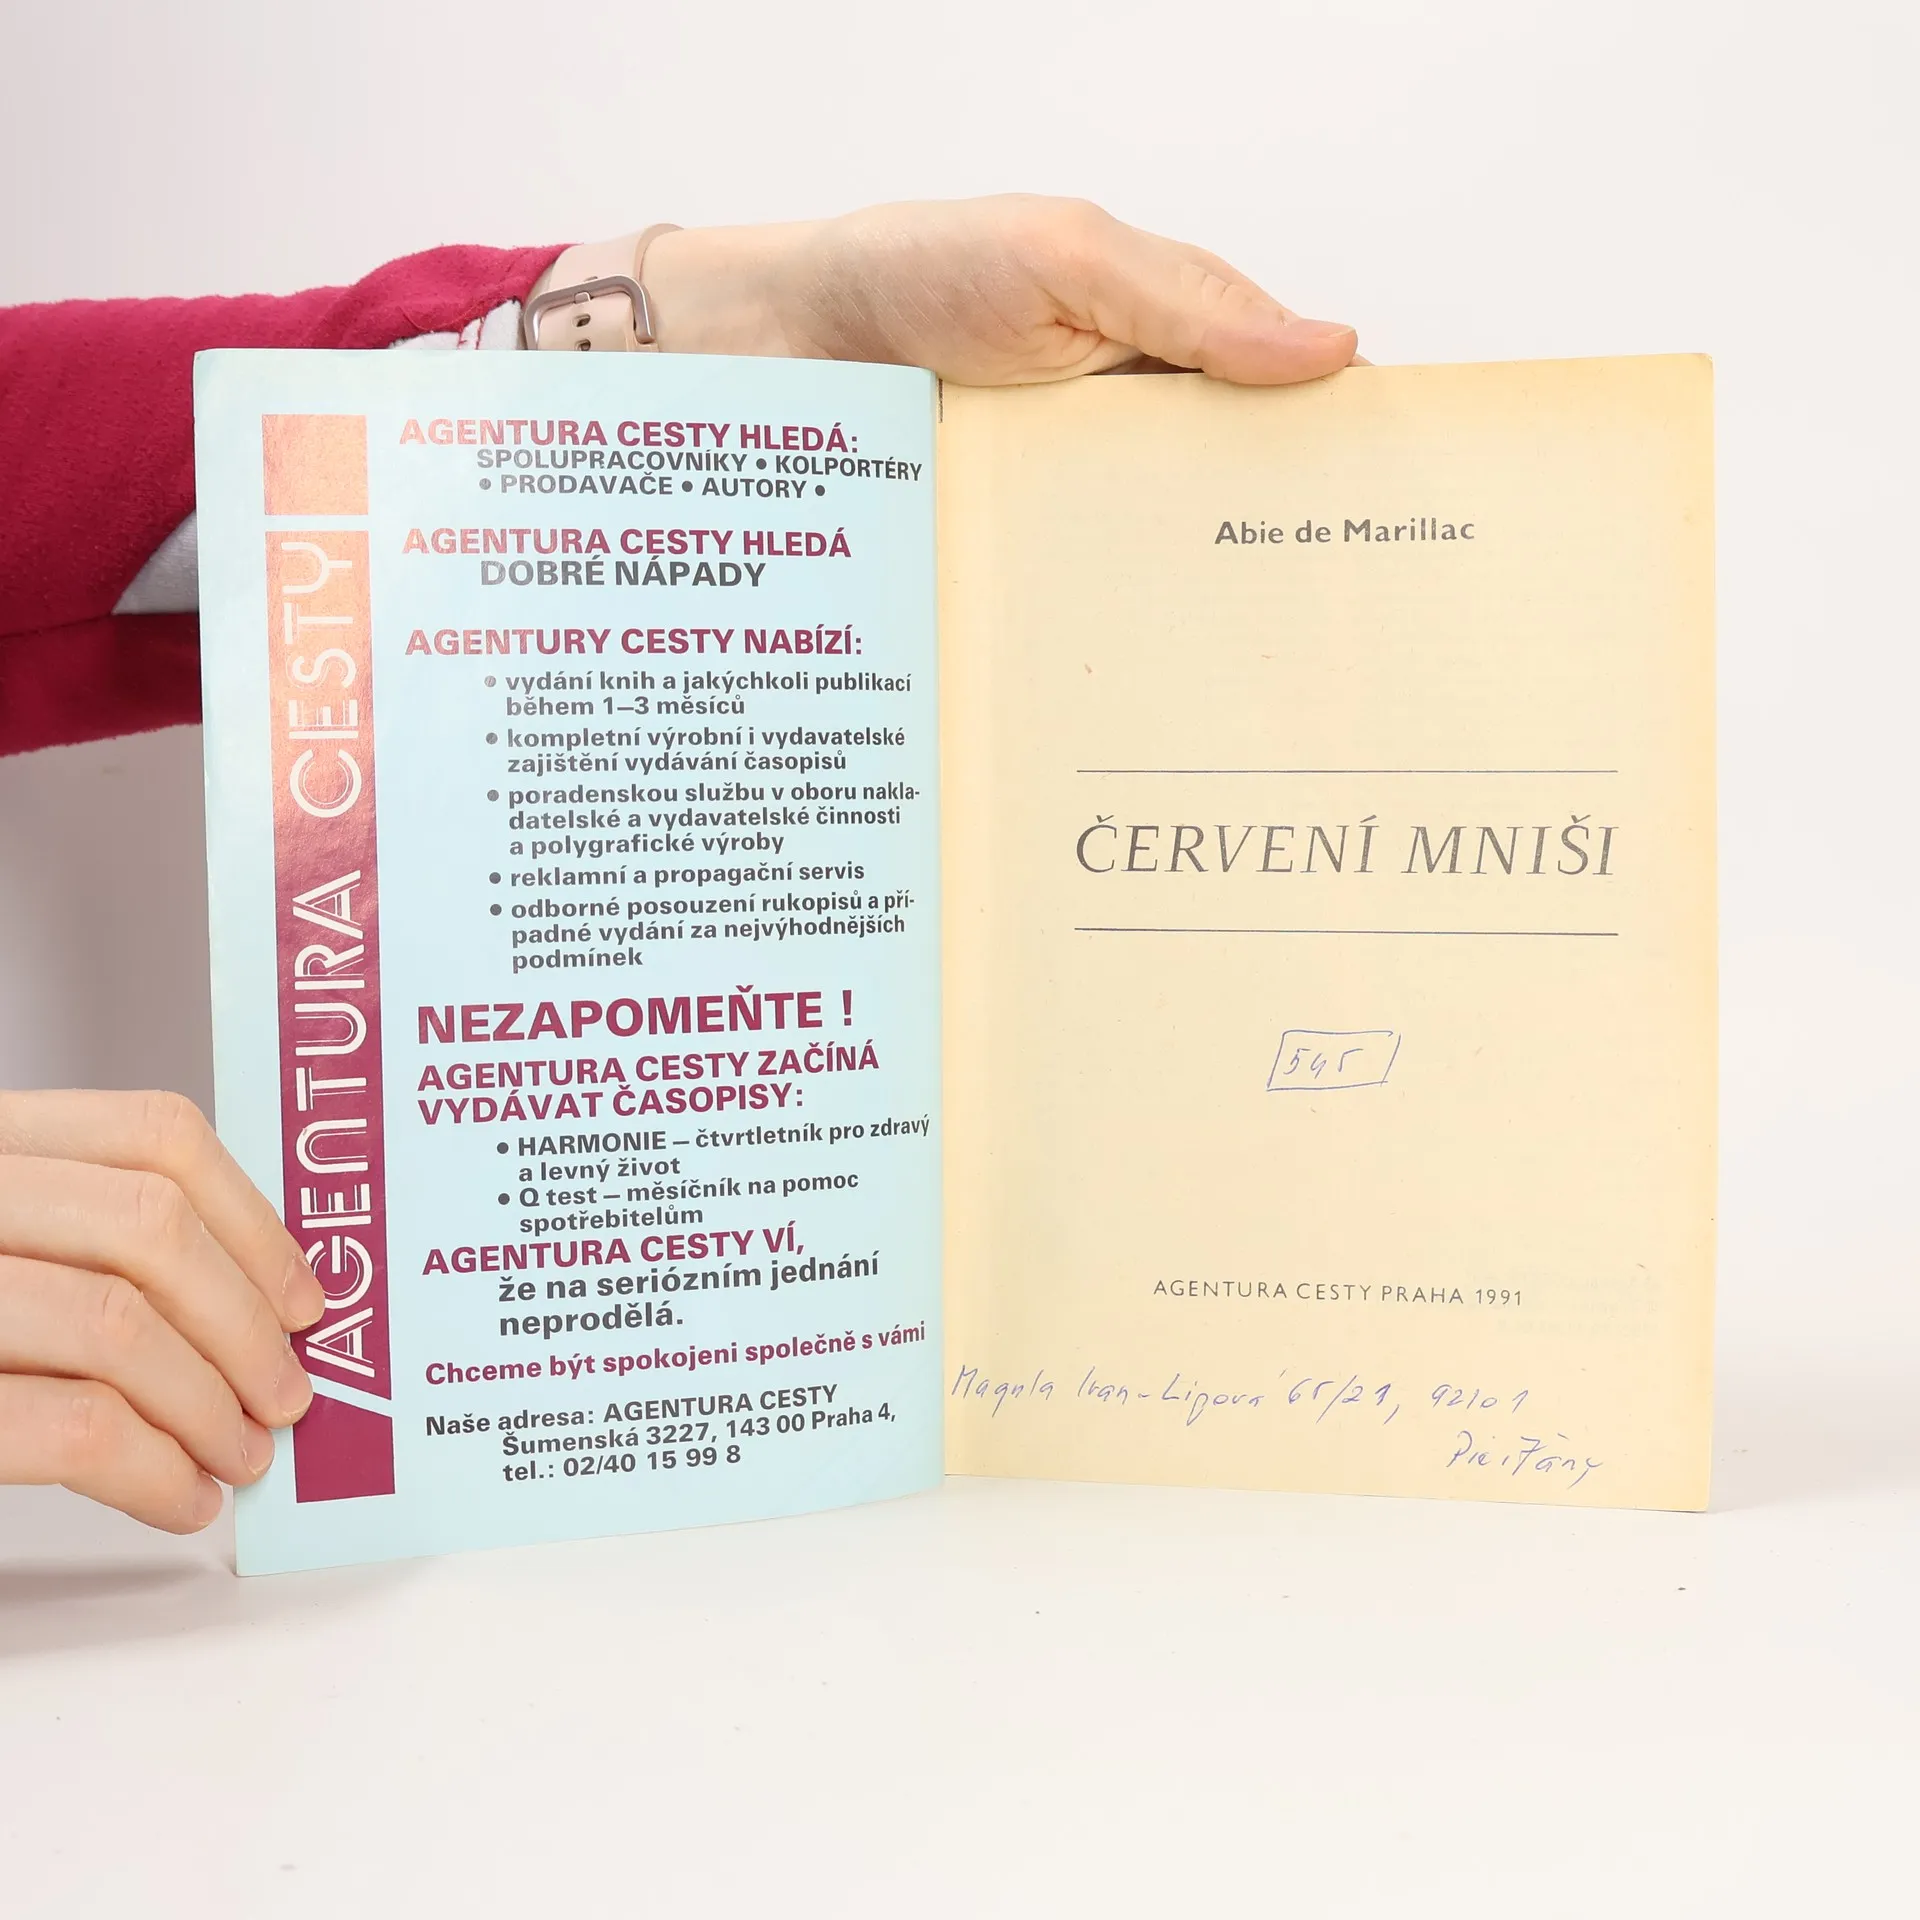 AGENTURA CESTY
AGENTURA CESTY HLEDÁ:
SPOLUPRACOVNÍKY • KOLPORTÉRY
• PRODAVAČE • AUTORY •
AGENTURA CESTY HLEDÁ
DOBRÉ NÁPADY
AGENTURY CESTY NABÍZÍ:
• vydání knih a jakýchkoli publikací
během 1–3 měsíců
• kompletní výrobní i vydavatelské
zajištění vydávání časopisů
• poradenskou službu v oboru nakla-
datelské a vydavatelské činnosti
a polygrafické výroby
• reklamní a propagační servis
• odborné posouzení rukopisů a pří-
padné vydání za nejvýhodnějších
podmínek
NEZAPOMEŇTE !
AGENTURA CESTY ZAČÍNÁ
VYDÁVAT ČASOPISY:
• HARMONIE – čtvrtletník pro zdravý
a levný život
• Q test – měsíčník na pomoc
spotřebitelům
AGENTURA CESTY VÍ,
že na seriózním jednání
neprodělá.
Chceme být spokojeni společně s vámi
Naše adresa: AGENTURA CESTY
Šumenská 3227, 143 00 Praha 4,
tel.: 02/40 15 99 8
Abie de Marillac
ČERVENÍ MNIŠI
545
AGENTURA CESTY PRAHA 1991
Magula Ivan - Lipová 65/21, 92101